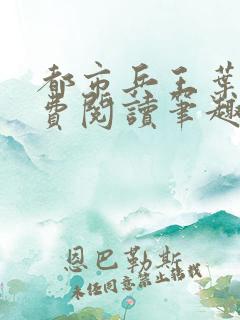 都市兵王葉
費閱讀筆趣
恩巴勒斯
未经同意禁止转载